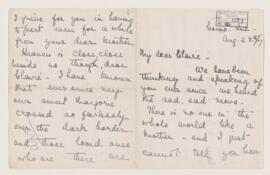 Aug. 28th/17
My dear Claire -
We have been
thinking and speaking of
you ever since we heard
the sad, sad - news.
There is no one in the
whole world like a
mother - and I just
cannot tell you how
I grieve for you in having
to part even for a while
from your dear mother.
Heaven is close, close
beside us though, dear
Claire - I have known
that ever since my
own sweet Marjorie
crossed so fearlessly
over the dark border -
and those loved ones
who are there are